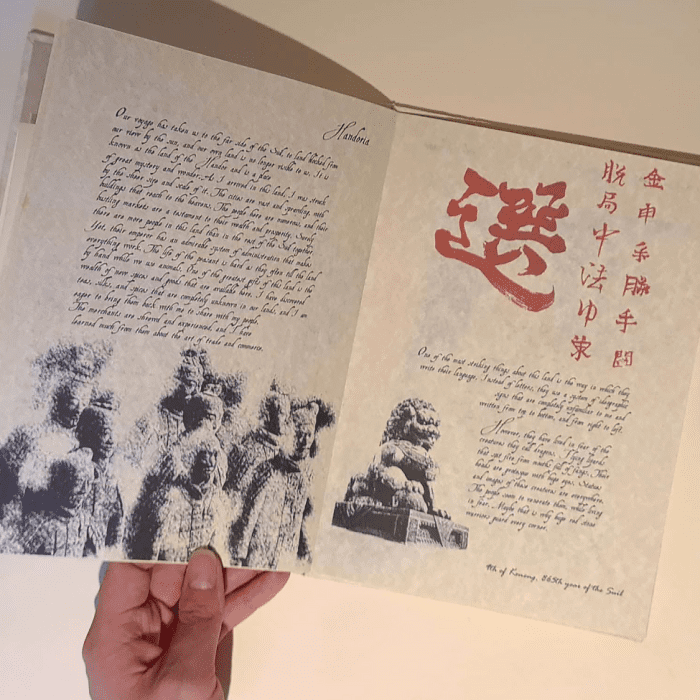 Handoria
Our voyage has taken us to the far side of the Suil, to land blocked from
our view by the sun, and our own land is no longer visible to us. It is
known as the land of the Handoo and is a place
of great mystery and wonder. As I arrived in this land, I was struck
by the sheer size and scale of it. The cities are vast and sprawling, with
buildings that reach to the heavens. The people here are numerous, and their
bustling markets are a testament to their wealth and prosperity. Surely
there are more people in this land than in the rest of the Suil together.
Yet, their emperor has an admirable system of administration that makes
everything work. The life of the peasant is hard as they often till the land
by hand while we use animals. One of the greatest gifts of this land is the
wealth of new spices and goods that are available here. I have discovered
teas, silks, and spices that are completely unknown in our lands, and I am
eager to bring them back with me to share with my people.
The merchants are shrewd and experienced, and I have
learned much from them about the art of trade and commerce.
選
金申系勝手閗
脱局中法印
One of the most striking things about this land is the way in which they
write their language. Instead of letters, they use a system of ideographic
signs that are completely unfamiliar to me and
written from top to bottom, and from right to left.
However, they have lived in fear of the
creatures they call dragons. Flying lizards
that spit fire from mouths full of fangs. Their
heads are grotesque with huge eyes. Statues
and images of these creatures are everywhere.
The people seem to venerate them, while living
in fear. Maybe that is why huge red stone
monsters guard every corner.
9th of Kenong, 865th year of the Suil